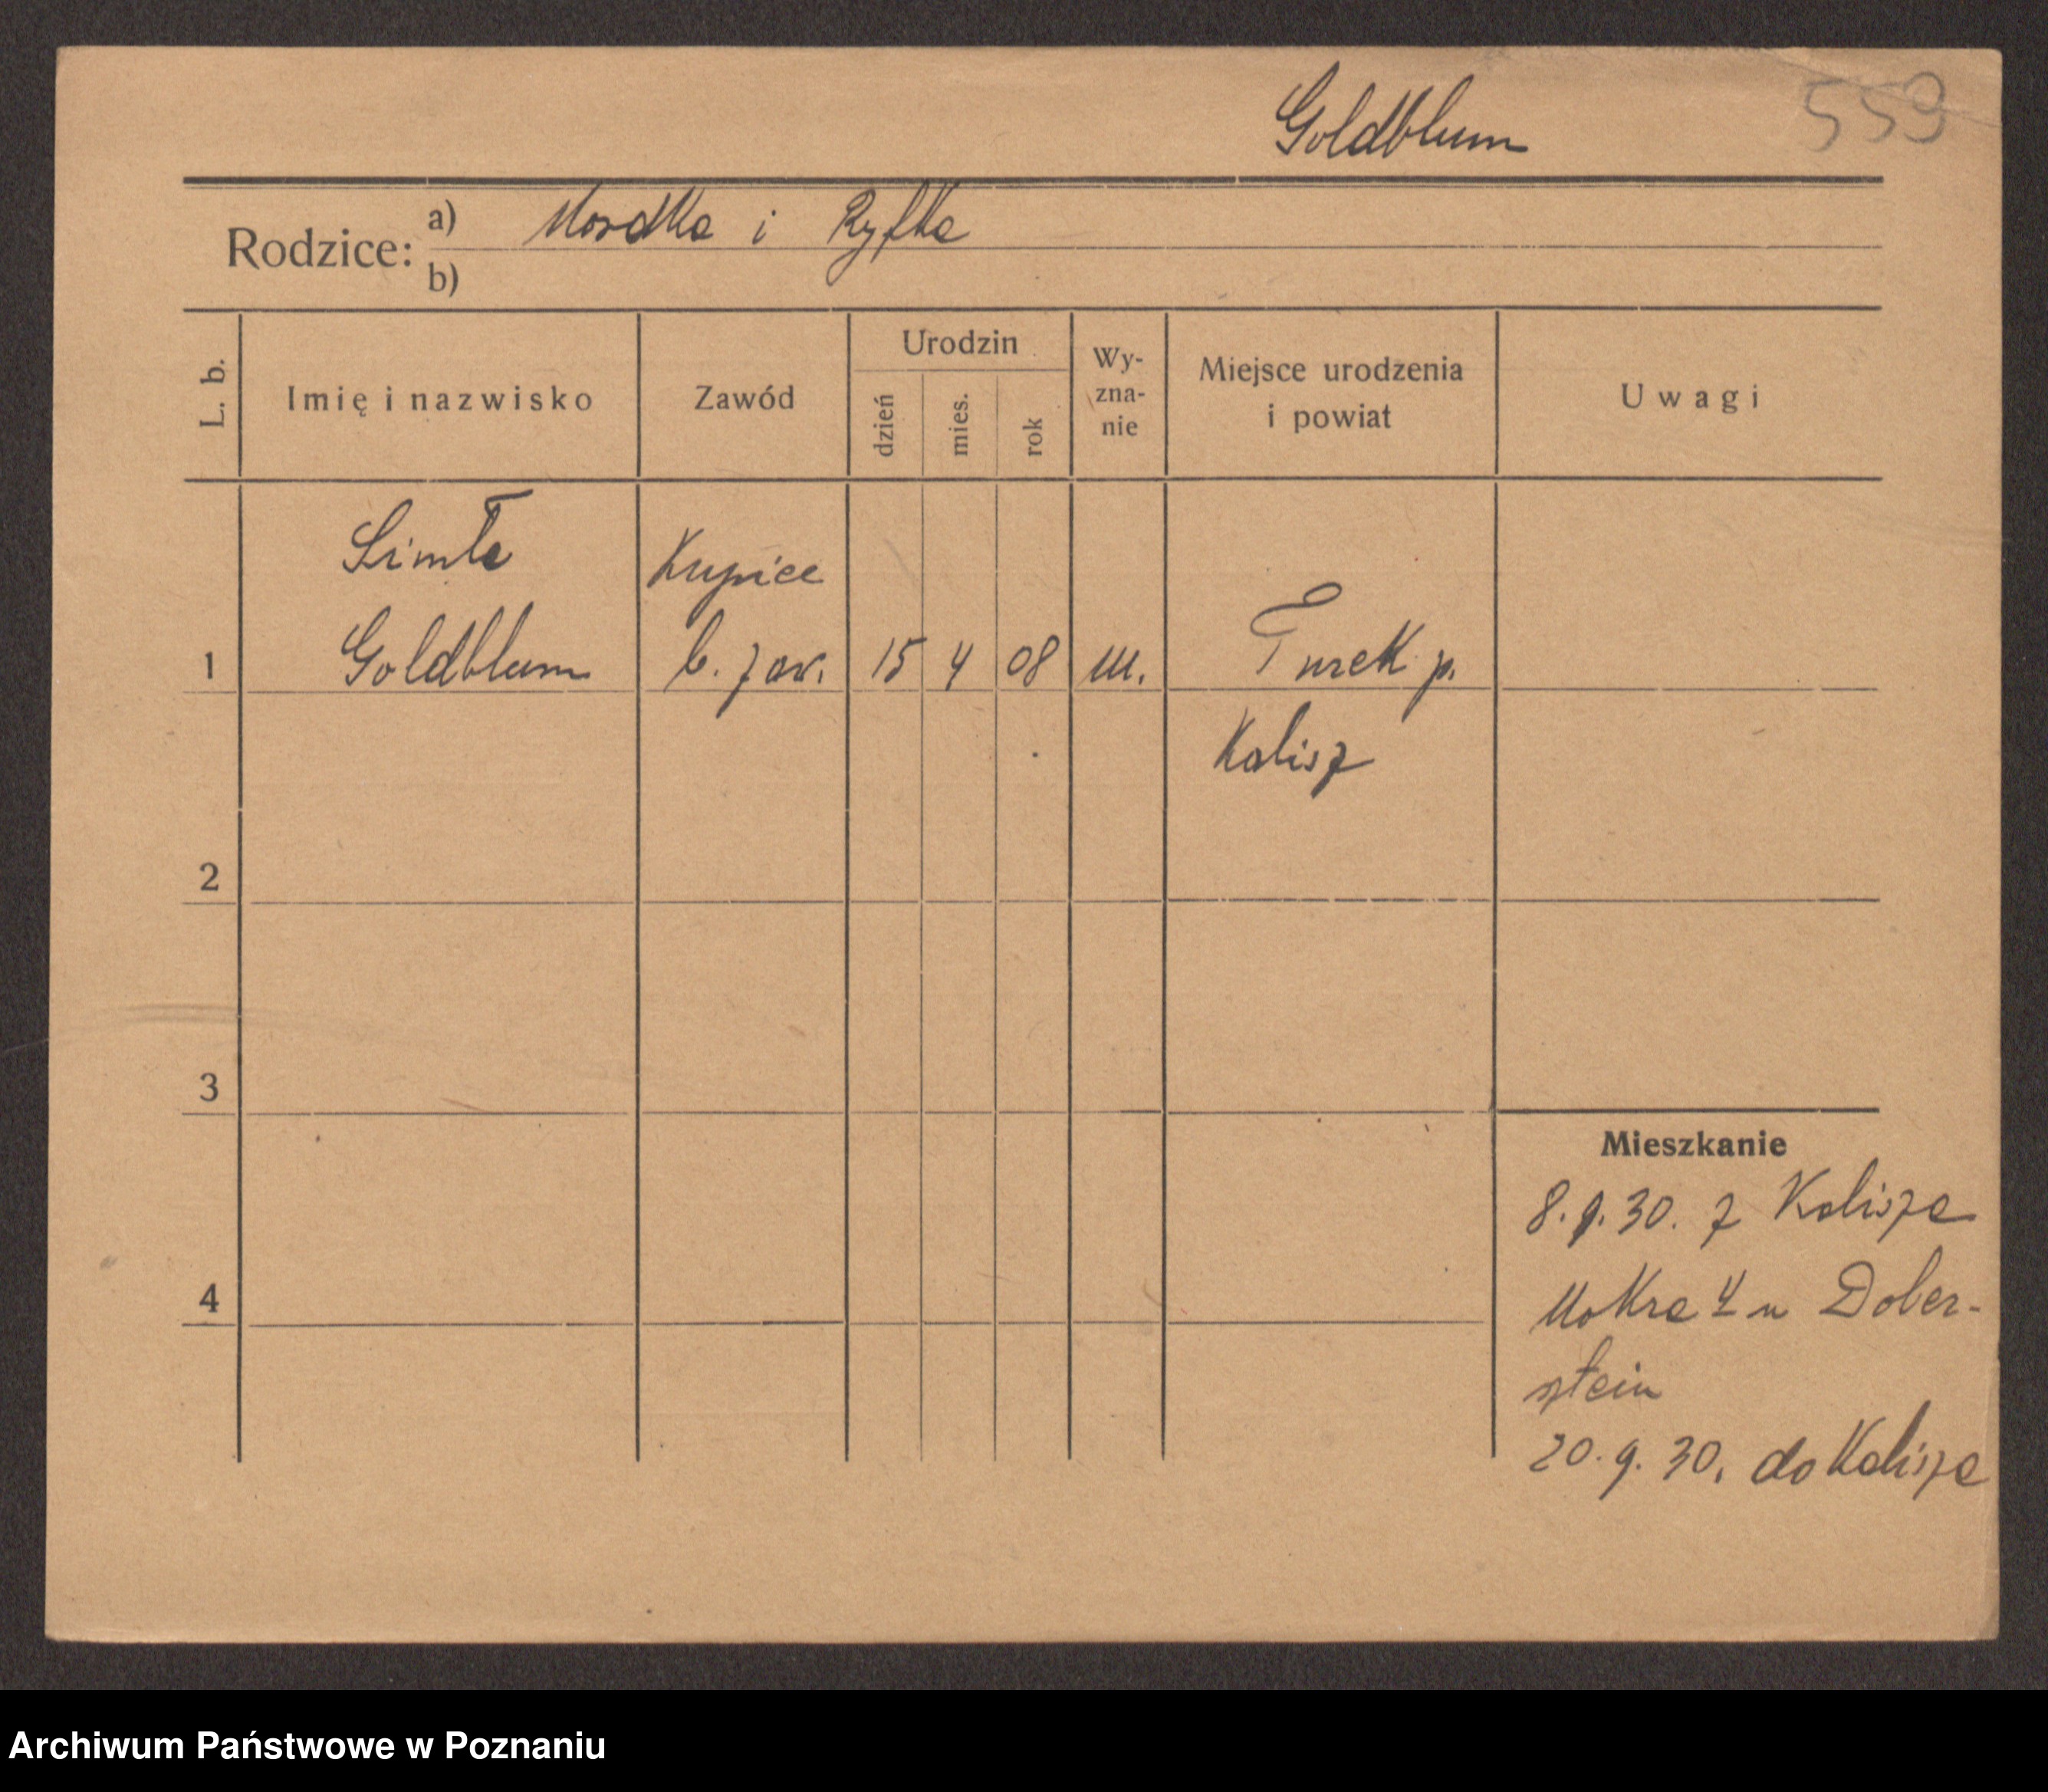 Goldblum 559
Rodzice: a) Mordka i Ryfka
b)
L. b. Imię i nazwisko Zawód Urodzin dzień mies. rok Wy-zna-nie Miejsce urodzenia i powiat Uwagi
Kupiec
1 Goldblum b. zaw. 15 4 08 m. Turek p.
Kalisz
2
3
Mieszkanie
8. 9. 30. z Kalisza
4
Mokra 4 u Dober-
sztein
20. 9. 30. do Kalisza
Archiwum Państwowe w Poznaniu